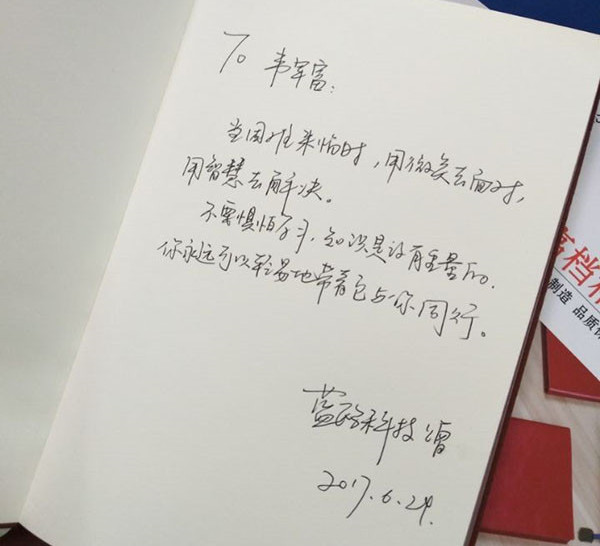 To 韦军富:
当困难来临时,用微笑去面对,
用智慧去解决。
不要惧怕学习,知识是没有重量的.
你永远可以轻易地带着它与你同行。
科技 赠
2017.6.24.
高档
制造 品质